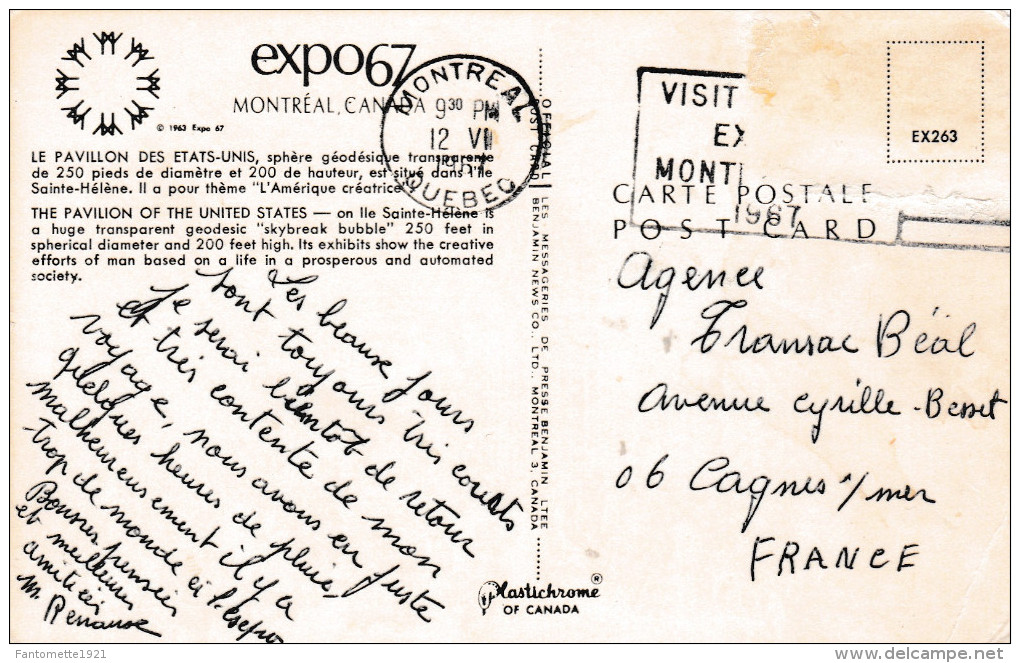 expo67
MONTRÉAL, CANADA
© 1963 Expo 67
LE PAVILLON DES ETATS-UNIS, sphère géodésique transparente
de 250 pieds de diamètre et 200 de hauteur, est situé dans l'Ile
Sainte-Hélène. Il a pour thème "L'Amérique créatrice".
THE PAVILION OF THE UNITED STATES — on Ile Sainte-Hélène is
a huge transparent geodesic "skybreak bubble" 250 feet in
spherical diameter and 200 feet high. Its exhibits show the creative
efforts of man based on a life in a prosperous and automated
society.
MONTREAL
9 30 PM
12 VII
1967
QUEBEC
Les beaux jours
sont toujours très courts
Je serai bientot de retour
et très contente de mon
voyage, nous avons eu juste
quelques heures de pluie,
malheureusement il y a
trop de monde à l'expo
Bonnes pensées
et meilleures
amitiés
M.
OFFICIAL
POST CARD
LES MESSAGERIES DE PRESSE BENJAMIN LTEE
BENJAMIN NEWS CO., LTD., MONTREAL 3, CANADA
Plastichrome ®
OF CANADA
VISIT
EX
MONT
1967
EX263
CARTE POSTALE
POST CARD
Agence
Transac Béal
Avenue Cyrille-Besset
06 Cagnes s/mer
FRANCE
Fantomette1921
delcampe.net